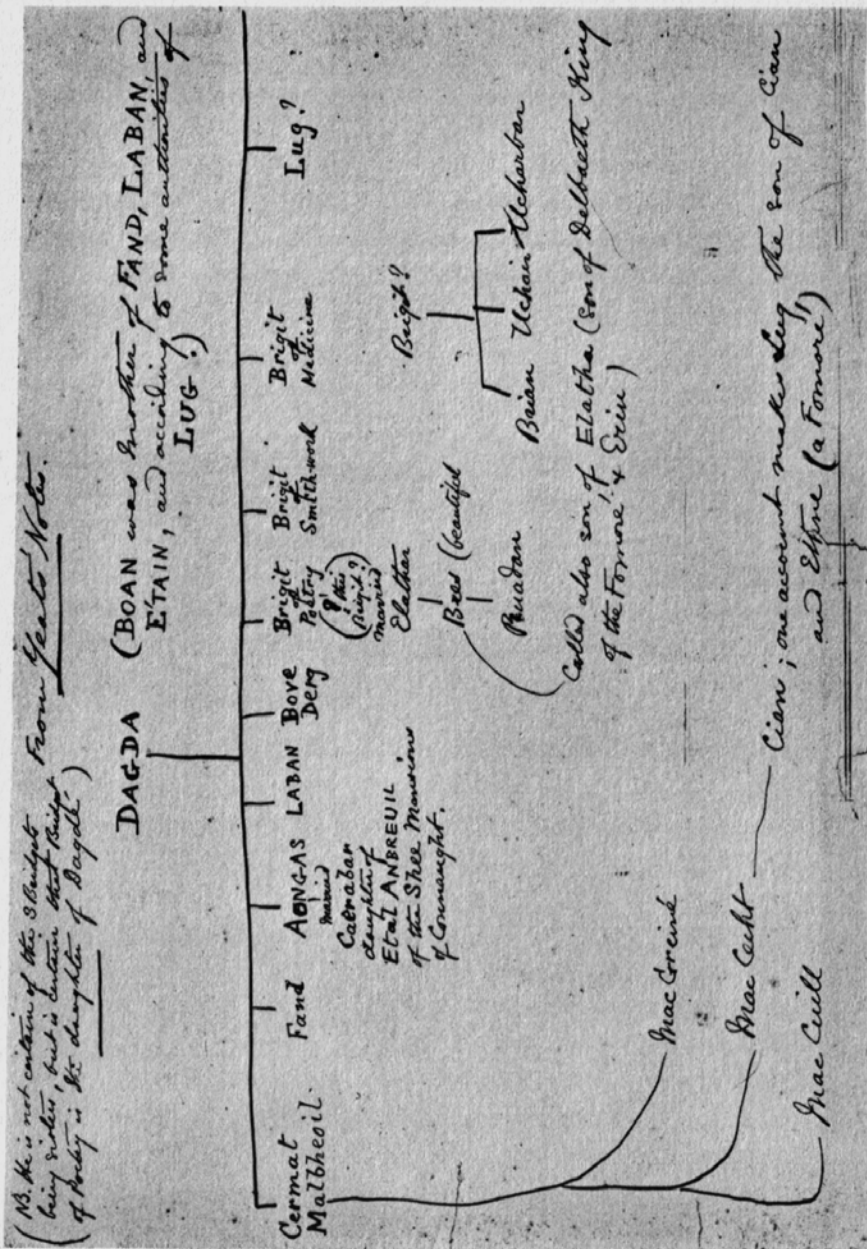 (NB. He is not certain of the 3 Brigits
being sisters, but is certain that Brigit
of Poetry is the daughter of Dagda)
From Yeats' Notes.
DAGDA
(BOAN was mother of FAND, LABAN, and
ETAIN, and according to some authorities of
LUG.)
Cermat
Malbheoil
Fand
AONGAS
married
Caerabar
daughter of
Etal ANBREUIL
of the Shee Mansions
of Connaught.
LABAN
Bove
Derg
Brigit
of
Poetry
(? this
Brigit?)
married
Elathan
Bres (beautiful
Ruadan
Brigit
of
Smith-work
Brigit
of
Medicine
Lug?
Brigit?
Brian Uchair Ucharbar
Called also son of Elatha (son of Delbaeth King
of the Fomore' & Erin)
Mac Greiné
Mac Cecht
Mac Cuill
Cian; one account makes Lug the son of Cian
and Ethne (a Fomore')